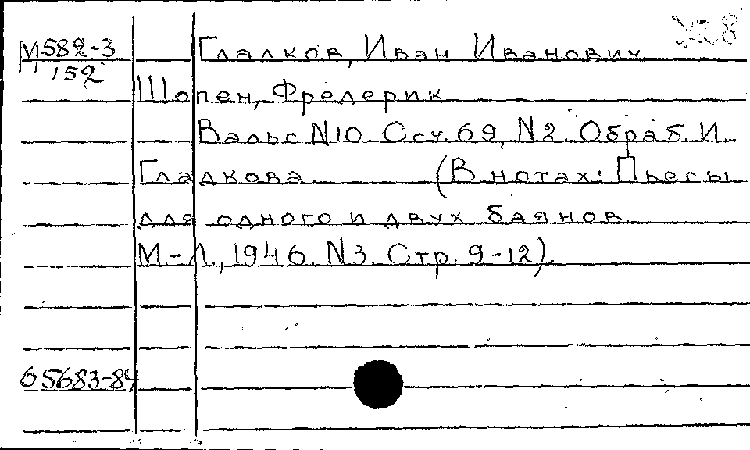 М582-3
152
Гладков, Иван Иванович
Шопен, Фредерик
Вальс N10. Осч. 69, N2. Обраб. И.
Гладкова (В нотах: Пьесы
для одного и двух баянов.
М-Л., 1946. N3. Стр. 9-12).
65683-84